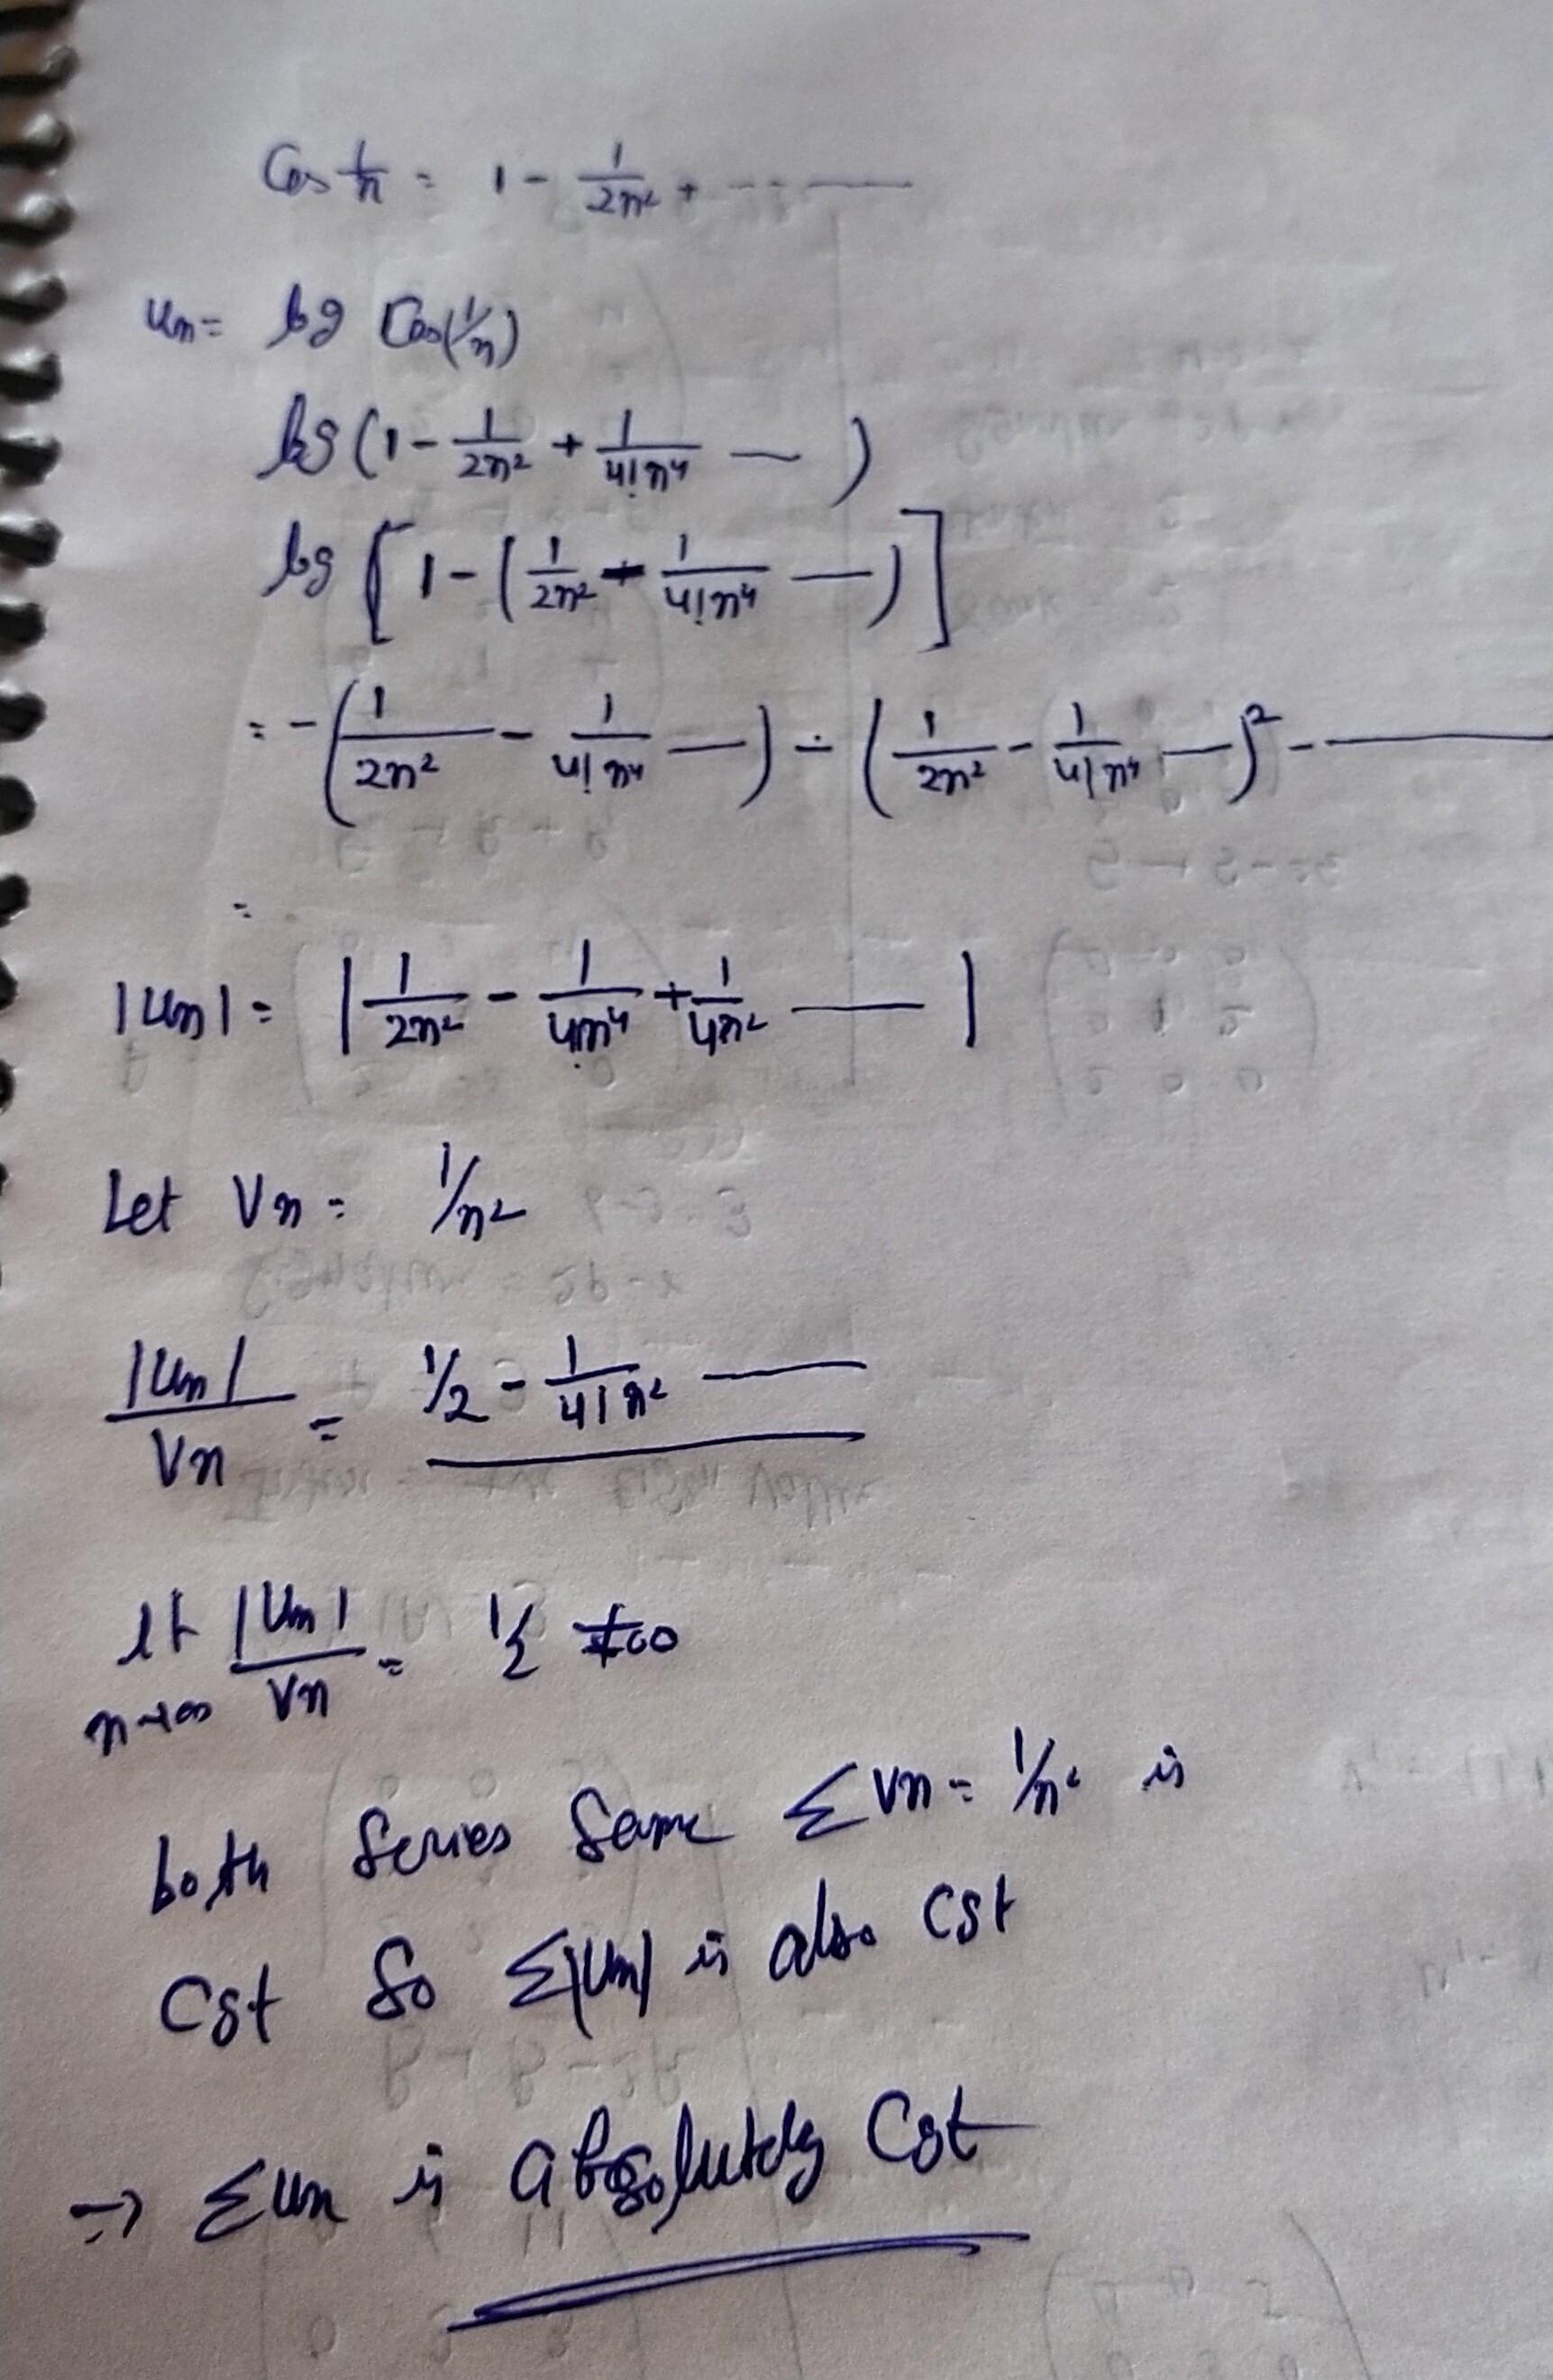 Cos 1/n = 1 - 1/2n² + -----
un = log Cos(1/n)
log (1 - 1/2n² + 1/4!n⁴ — )
log [1 - (1/2n² - 1/4!n⁴ — )]
= - (1/2n² - 1/4!n⁴ — ) - (1/2n² - 1/4!n⁴ — )² - ———
=
|un| = | 1/2n² - 1/4!n⁴ + 1/4n² — |
Let Vn = 1/n²
|un|/Vn = 1/2 - 1/4!n² ——
lt n→∞ |un|/Vn = 1/2 ≠ ∞
both Series Same ΣVn = 1/n² is
Cgt So Σ|un| is also Cgt
→ Σun is absolutely Cgt